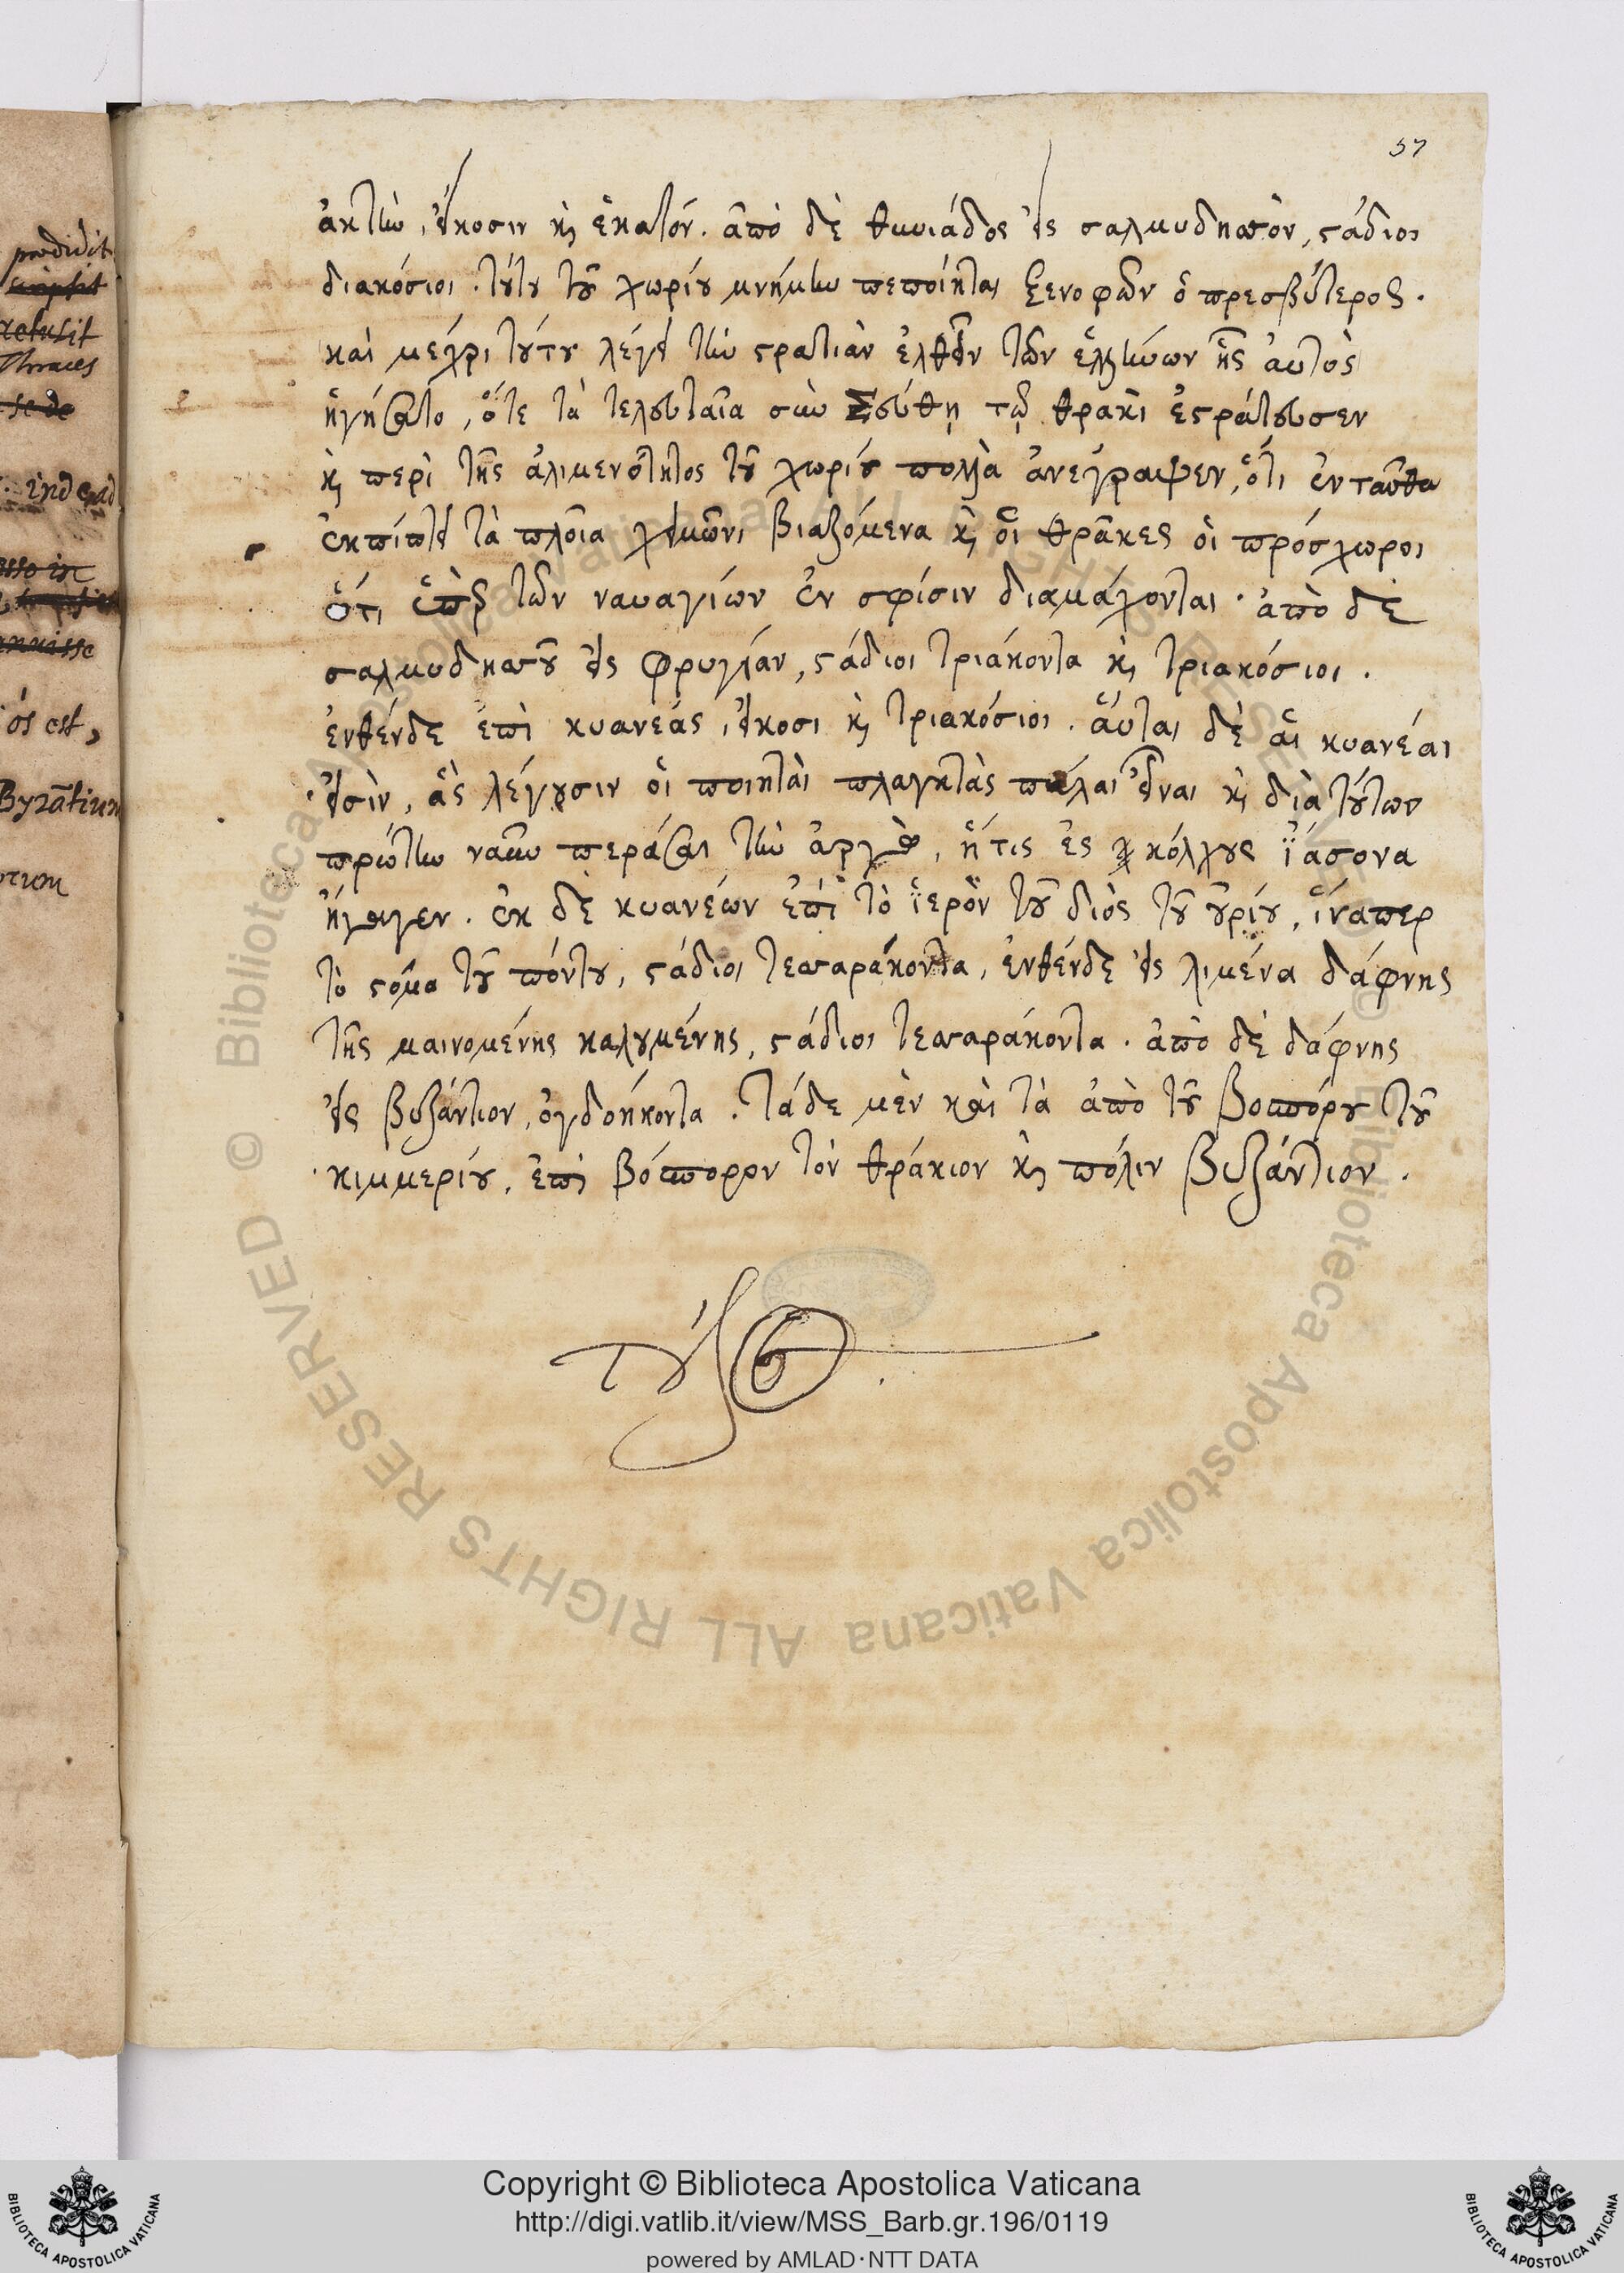 57
ἀκτὴν, εἴκοσιν κ̀ ἑκατόν. ἀπὸ δὲ θυνιάδος εἰς σαλμυδησσὸν, στάδιοι
διακόσιοι. τούτου τοῦ χωρίου μνήμην πεποίηται ξενοφῶν ὁ πρεσβύτερος.
καὶ μέχρι τούτου λέγει τὴν στρατιὰν ἐλθεῖν τῶν ἑλλήνων ἧς ἀυτὸς
ἡγήσατο, ὅτε τὰ τελευταῖα σὺν Σεύθῃ τῷ θρακὶ ἐστράτευσεν
κ̀ περὶ τῆς ἀλιμενότητος τοῦ χωρίου πολλὰ ἀνέγραψεν, ὅτι ἐνταῦθα
ἐκπίπτει τὰ πλοῖα χειμῶνι βιαζόμενα κ̀ οἱ θρᾶκες οἱ πρόσχωροι
ὅτι ὑπὲρ τῶν ναυαγίων ἐν σφίσιν διαμάχονται. ἀπὸ δὲ
σαλμυδησσοῦ εἰς φρυγίαν, στάδιοι τριάκοντα κ̀ τριακόσιοι.
ἐνθένδε ἐπὶ κυανεάς, εἴκοσι κ̀ τριακόσιοι. αὗται δὲ αἱ κυανέαι
εἰσὶν, ἃς λέγουσιν οἱ ποιηταὶ πλαγκτὰς πάλαι εἶναι κ̀ διὰ τούτων
πρώτην ναῦν περάσαι τὴν ἀργὼ, ἥτις ἐς κόλχους ἰάσονα
ἤγαγεν. ἐκ δὲ κυανέων ἐπὶ τὸ ἱερὸν τοῦ διὸς τοῦ οὐρίου, ἵναπερ
τὸ στόμα τοῦ πόντου, στάδιοι τεσσαράκοντα, ἐνθένδε εἰς λιμένα δάφνης
τῆς μαινομένης καλουμένης, στάδιοι τεσσαράκοντα. ἀπὸ δὲ δάφνης
εἰς βυζάντιον, ὀγδοήκοντα. τάδε μὲν καὶ τὰ ἀπὸ τοῦ βοσπόρου τοῦ
κιμμερίου, ἐπὶ βόσπορον τὸν θράκιον κ̀ πόλιν βυζάντιον.
prodidit
Thraces
ós est,
Byzātium
Copyright © Biblioteca Apostolica Vaticana
http://digi.vatlib.it/view/MSS_Barb.gr.196/0119
powered by AMLAD·NTT DATA
BIBLIOTECA APOSTOLICA VATICANA
BIBLIOTECA APOSTOLICA VATICANA
© Biblioteca Apostolica Vaticana ALL RIGHTS RESERVED © Biblioteca Apostolica Vaticana ALL RIGHTS RESERVED